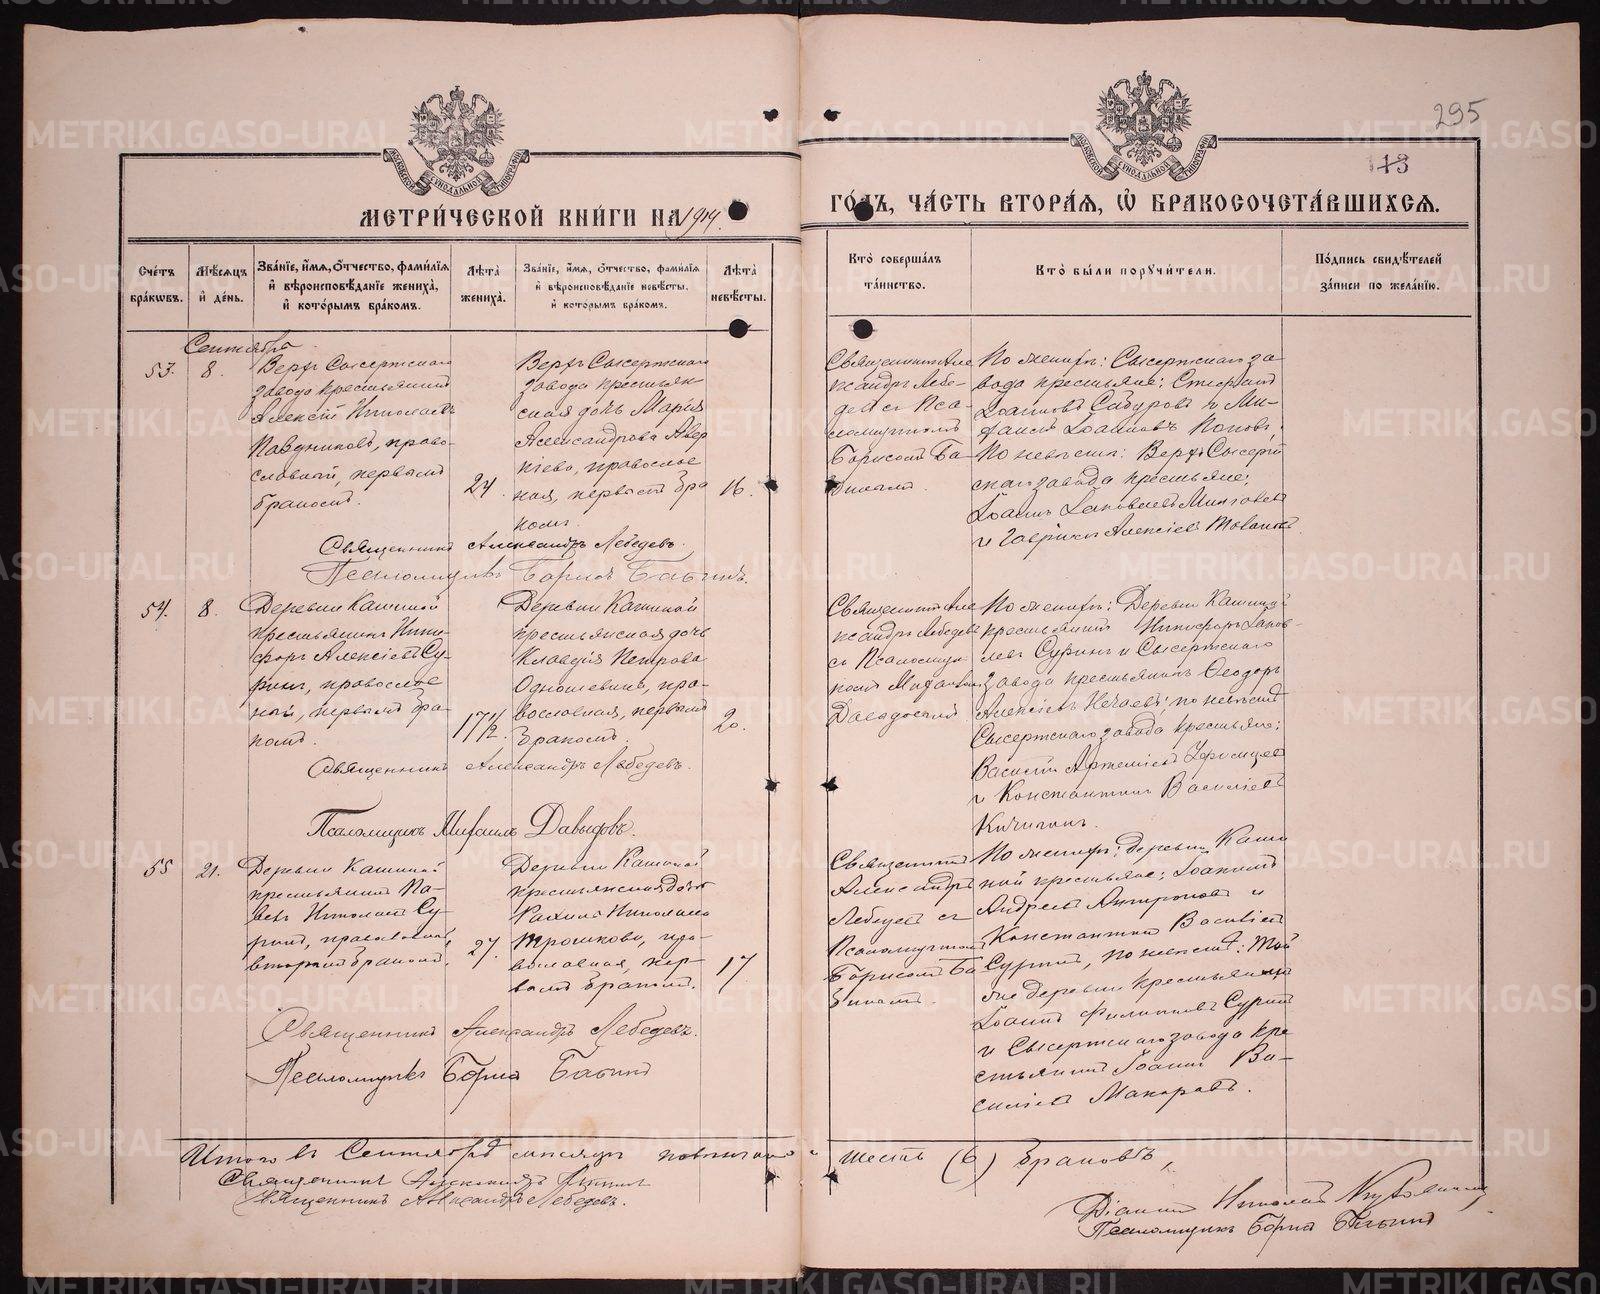 295
13
МЕТРИ́ЧЕСКОЙ КНИ́ГИ НА 1914
ГО́ДЪ, ЧА́СТЬ ВТОРА́Я, Ѿ БРАКОСОЧЕТА́ВШИХСЯ.
Сче́тъ бра́кѡвъ.
Мѣ́сяцъ и҆ де́нь.
Зва́нїе, и҆́мя, ѻ҆́тчество, фами́лїя и҆ вѣроисповѣ́данїе жениха̀, и҆ кото́рымъ бра́комъ.
Лѣта̀ жениха̀.
Зва́нїе, и҆́мя, ѻ҆́тчество, фами́лїя и҆ вѣроисповѣ́данїе невѣ́сты, и҆ кото́рымъ бра́комъ.
Лѣта̀ невѣ́сты.
Кто̀ соверша́лъ та́инство.
Кто̀ бы́ли порꙋчи́тели.
По́дпись свидѣ́телей за́писи по жела́нїю.
Сентября
53.
8.
Верхъ Сысертскаго
завода крестьянинъ
Алексѣй Николаевъ
православный, первымъ
бракомъ.
24.
Верхъ Сысертскаго
завода крестьян-
ская дочь Марія
Александрова Авер
кіева, православ
ная, первымъ бра
комъ.
16.
Священникъ Але
ксандръ Лебе-
девъ съ Пса-
ломщикомъ
Борисомъ Ба-
бинымъ.
По женихѣ: Сысертскаго за
вода крестьяне:
Іоанновъ Сабуровъ и Ми-
хаилъ Іоанновъ Поповъ;
По невѣстѣ: Верхъ Сысерт
скаго завода крестьяне:
Іоаннъ Іаковлевъ
и Алексіевъ
Священникъ Александръ Лебедевъ.
Псаломщикъ Борисъ Бабинъ.
54.
8.
Деревни Кашиной
крестьянинъ Ники-
форъ Алексіевъ Су-
ринъ, православ
ный, первымъ бра-
комъ.
17 1/2.
Деревни Кашиной
крестьянская дочь
Клавдія Петрова
православная, первымъ
бракомъ.
20.
Священникъ Але
ксандръ Лебедевъ
съ Псаломщи-
комъ Михаиломъ
Давыдовымъ
По женихѣ: Деревни Кашиной
крестьянинъ Никифоръ Іаков-
левъ Суринъ и Сысертскаго
завода крестьянинъ Ѳеодоръ
Алексіевъ Нечаевъ; по невѣстѣ
Сысертскаго завода крестьяне:
Василій Артеміевъ
и Константинъ Василіевъ
Кичигинъ.
Священникъ Александръ Лебедевъ.
Псаломщикъ Михаилъ Давыдовъ.
55
21.
Деревни Кашиной
крестьянинъ Па-
велъ Николаевъ Су-
ринъ, православный,
вторымъ бракомъ.
27.
Деревни Кашиной
крестьянская дочь
Николаева
Трошкова, пра-
вославная, пер-
вымъ бракомъ.
17
Священникъ
Александръ
Лебедевъ съ
Псаломщикомъ
Борисомъ Ба
бинымъ.
По женихѣ: деревни Каши
ной крестьяне: Іоаннъ
Андреевъ Антроповъ и
Константинъ Василіевъ
Суринъ, по невѣстѣ: той
же деревни крестьянинъ
Іоаннъ Филипповъ Суринъ
и Сысертскаго завода кре
стьянинъ Іоаннъ Ва-
силіевъ Макаровъ.
Священникъ Александръ Лебедевъ.
Псаломщикъ Борисъ Бабинъ
Итого въ Сентябрѣ мѣсяцѣ повѣнчано шесть (6) браковъ,
Священникъ
Священникъ Александръ Лебедевъ.
Діаконъ Николай
Псаломщикъ Борисъ Бабинъ
METRIKI.GASO-URAL.RU